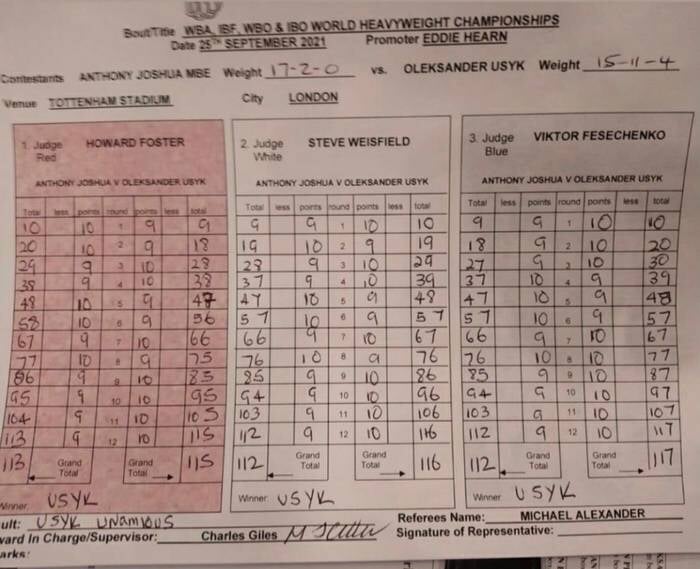 Bout Title WBA, IBF, WBO & IBO WORLD HEAVYWEIGHT CHAMPIONSHIPS
Date 25TH SEPTEMBER 2021 Promoter EDDIE HEARN
Contestants ANTHONY JOSHUA MBE Weight 17-2-0 vs. OLEKSANDER USYK Weight 15-11-4
Venue TOTTENHAM STADIUM City LONDON
1. Judge HOWARD FOSTER
Red
ANTHONY JOSHUA V OLEKSANDER USYK
Total less points round points less total
10 10 1 9 9
20 10 2 9 18
29 9 3 10 28
38 9 4 10 38
48 10 5 9 47
58 10 6 9 56
67 9 7 10 66
77 10 8 9 75
86 9 9 10 85
95 9 10 10 95
104 9 11 10 105
113 9 12 10 115
113 Grand Total Grand Total 115
Winner USYK
2. Judge STEVE WEISFIELD
White
ANTHONY JOSHUA V OLEKSANDER USYK
Total less points round points less total
9 9 1 10 10
19 10 2 9 19
28 9 3 10 29
37 9 4 10 39
47 10 5 9 48
57 10 6 9 57
66 9 7 10 67
76 10 8 9 76
85 9 9 10 86
94 9 10 10 96
103 9 11 10 106
112 9 12 10 116
112 Grand Total Grand Total 116
Winner USYK
3. Judge VIKTOR FESECHENKO
Blue
ANTHONY JOSHUA V OLEKSANDER USYK
Total less points round points less total
9 9 1 10 10
18 9 2 10 20
27 9 3 10 30
37 10 4 9 39
47 10 5 9 48
57 10 6 9 57
66 9 7 10 67
76 10 8 10 77
85 9 9 10 87
94 9 10 10 97
103 9 11 10 107
112 9 12 10 117
112 Grand Total Grand Total 117
Winner USYK
ult: USYK UNAMIOUS
Referees Name: MICHAEL ALEXANDER
ward In Charge/Supervisor: Charles Giles Signature of Representative:
arks: